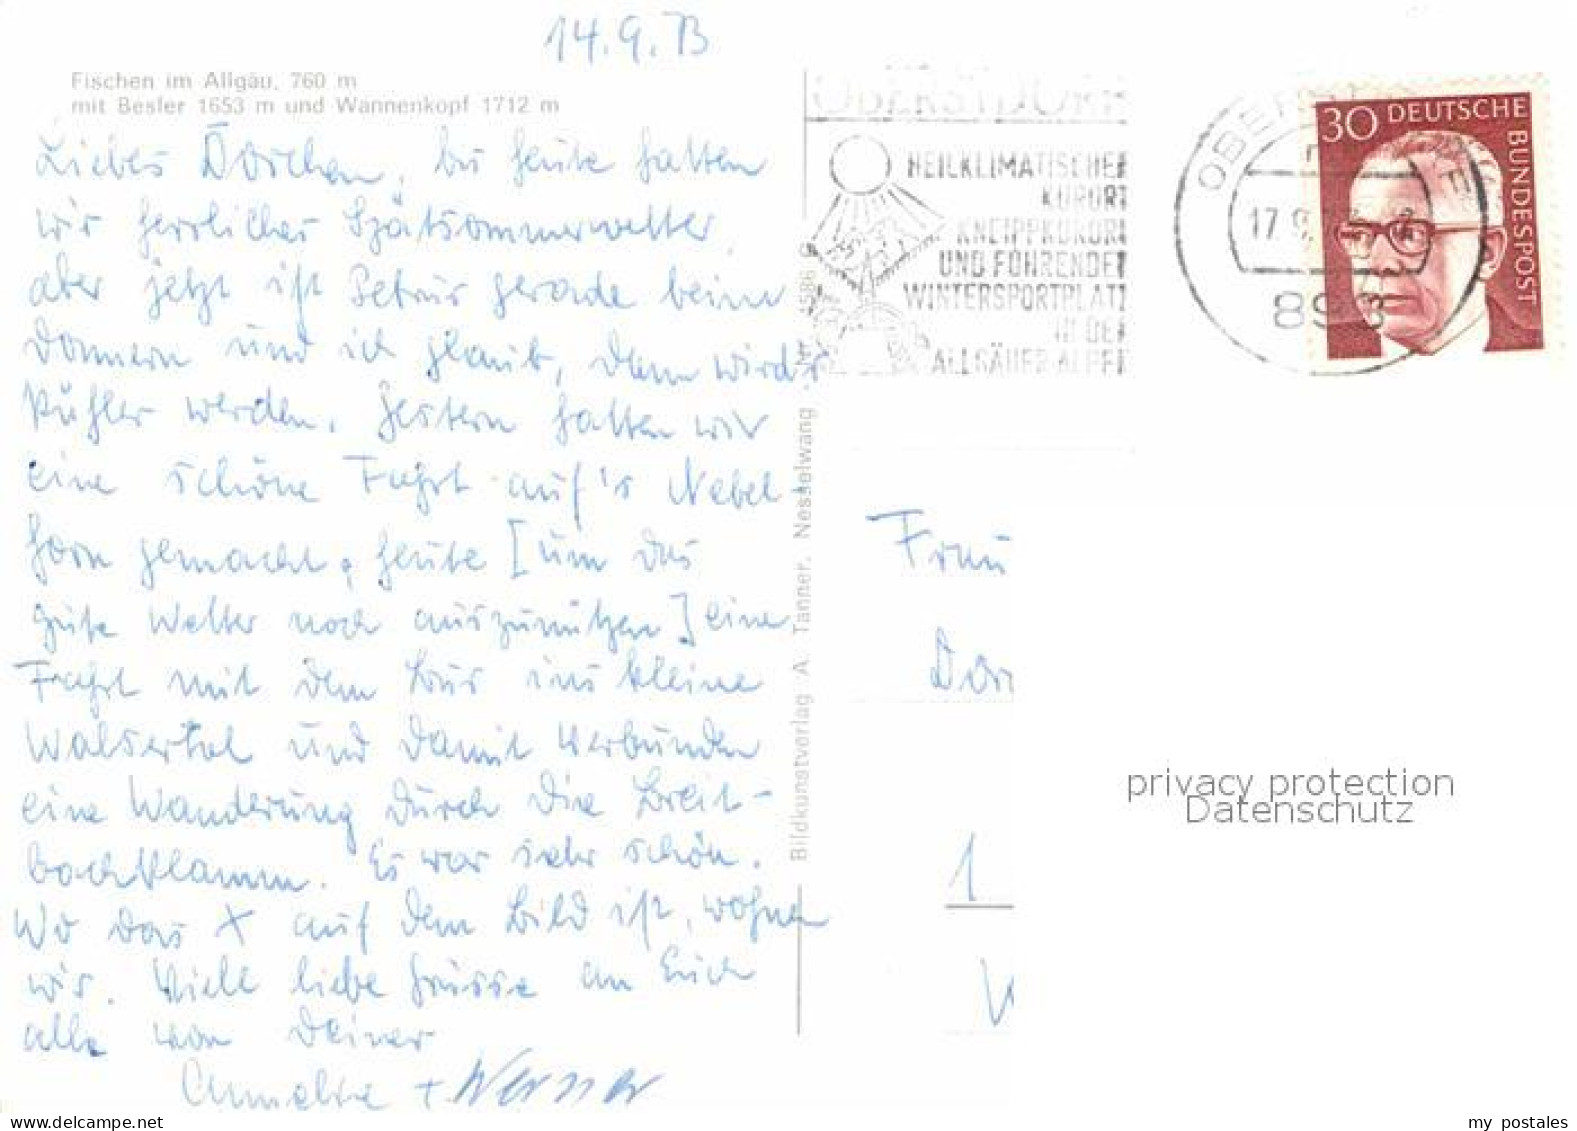 14.9.73
Fischen im Allgäu, 760 m
mit Besler 1653 m und Wannenkopf 1712 m
Liebes Dorchen, bis heute hatten
wir herrliches Spätsommerwetter,
aber jetzt ist Petrus gerade beim
Donnern und ich glaub, dann wird's
kühler werden. Gestern hatten wir
eine schöne Fahrt auf's Nebel-
horn gemacht, heute [um das
gute Wetter noch auszunützen] eine
Fahrt mit dem Bus ins kleine
Walsertal und damit verbunden
eine Wanderung durch die Breit-
bachklamm. Es war sehr schön.
Wo das X auf dem Bild ist, wohnen
wir. Viele liebe Grüsse an Euch
alle von Deiner
Annelise + Werner
Bildkunstverlag A. Tanner, Nesselwang
OBERSTDORF
HEILKLIMATISCHER
KURORT
KNEIPPKURORT
UND FÜHRENDER
WINTERSPORTPLATZ
IN DEN
ALLGÄUER ALPEN
17.9.
30 DEUTSCHE
BUNDESPOST
Frau
1
privacy protection
Datenschutz
my postales